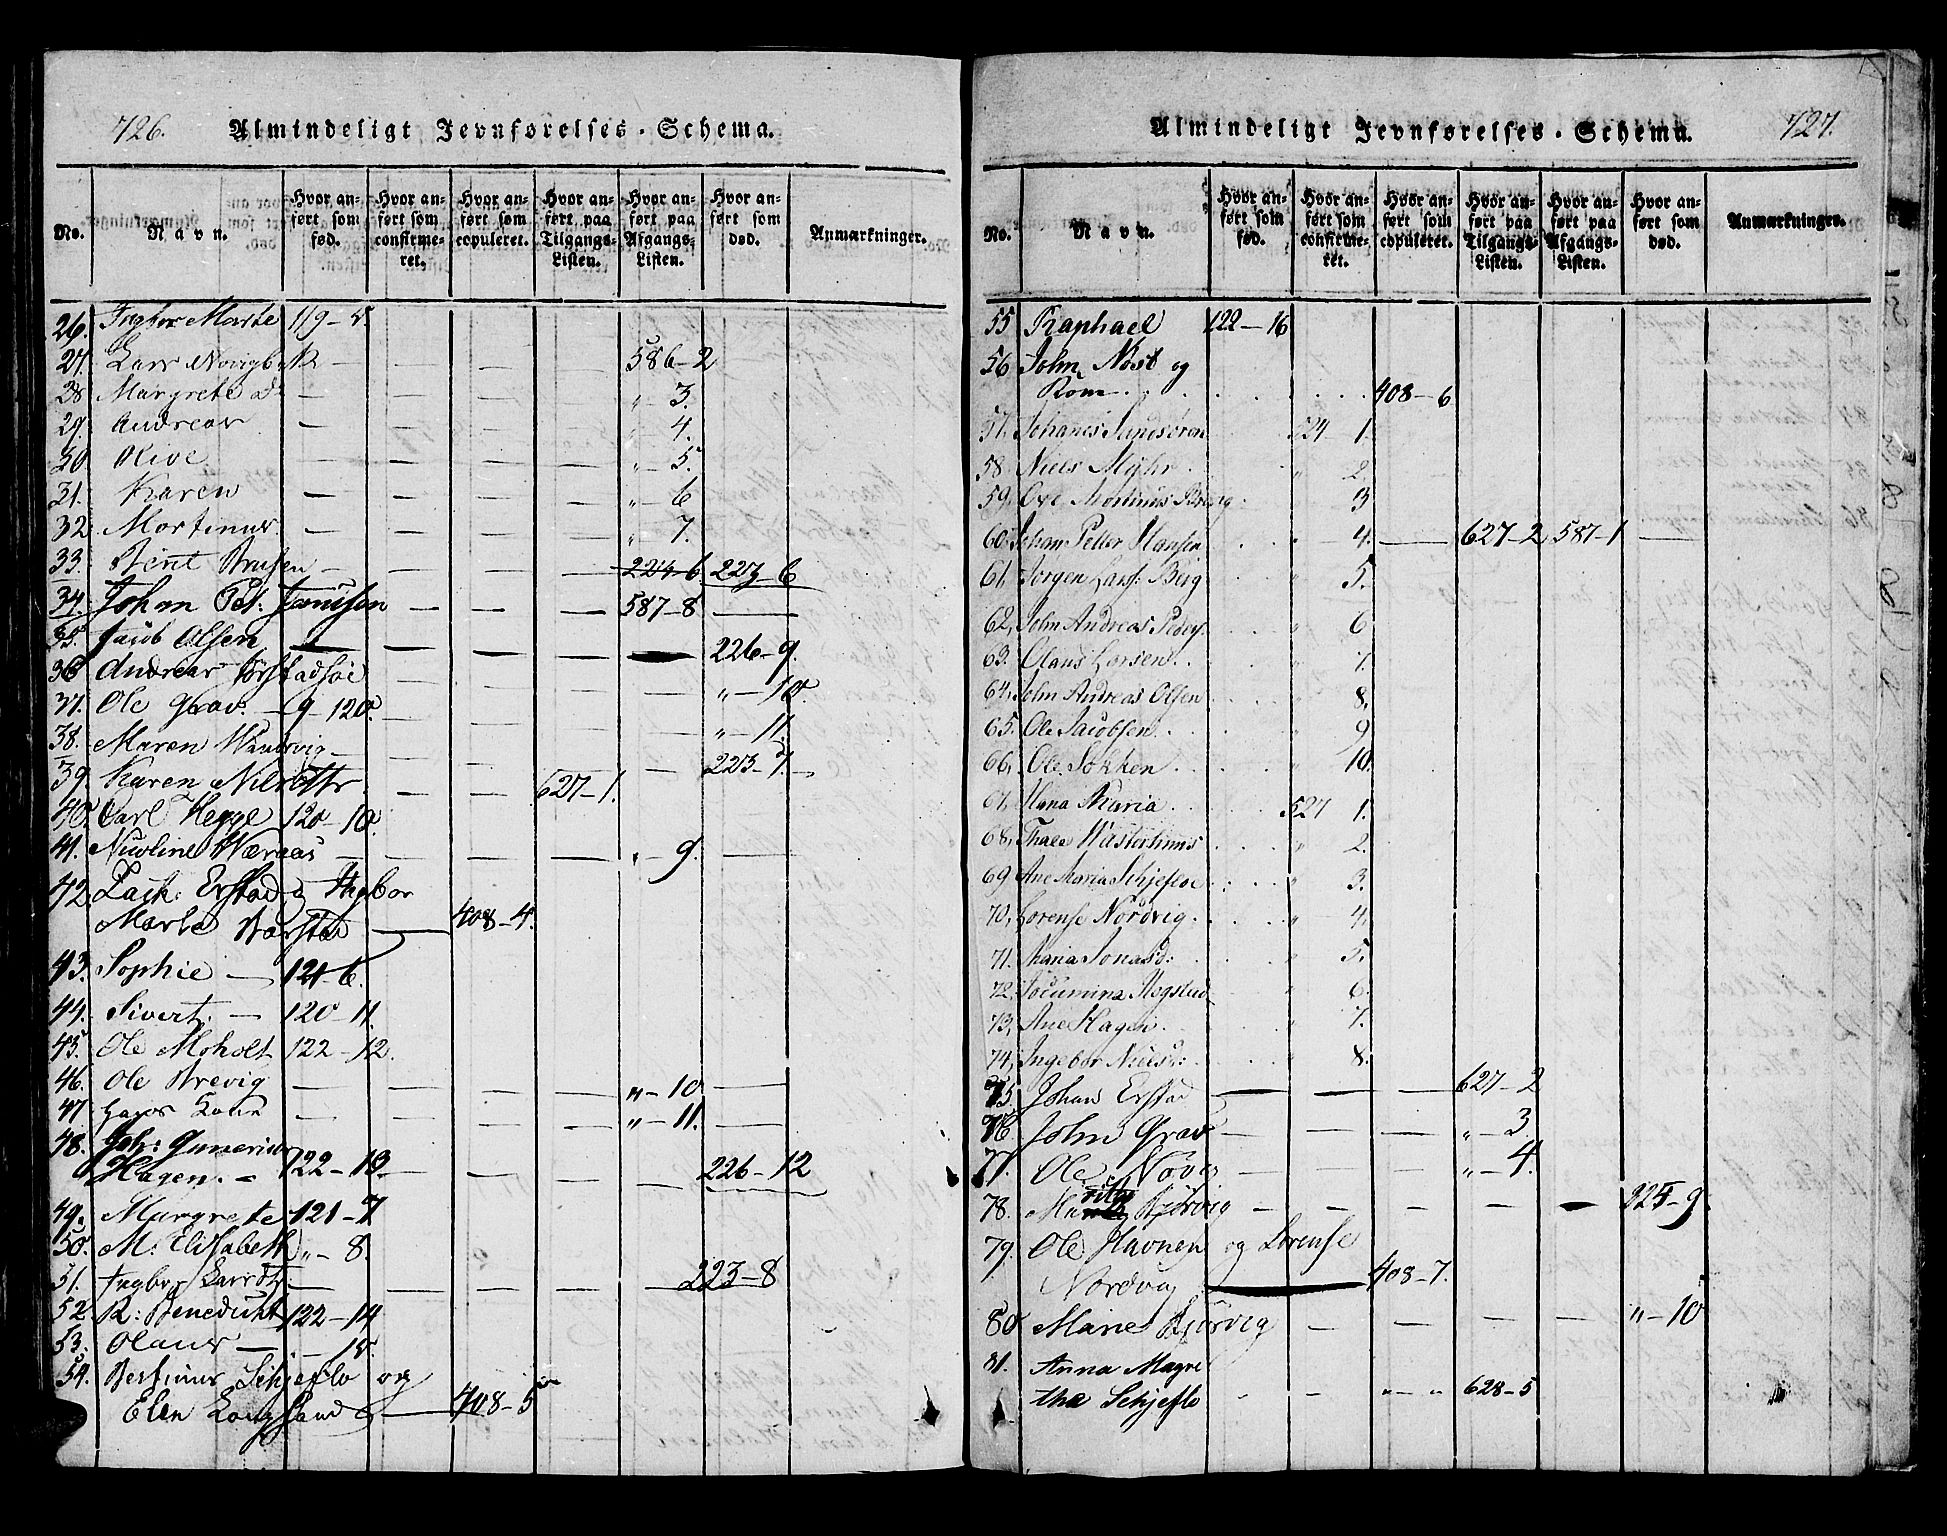 726. Almindeligt Jevnførelses-Schema.
No. Navn. Hvor anført som fød. Hvor anført som confirmeret. Hvor anført som copuleret. Hvor anført paa Tilgangs-Listen. Hvor anført paa Afgangs-Listen. Hvor anført som død. Anmærkninger.
26. Ingbor Marte 119-5.
27. Lars — 586-2
28 Margrete — „-3.
29. Andreas — „-4.
30 Olive — „-5.
31. Karen — „-6
32. Mortinus — „-7.
33. Berit — 223-6 223-6
34. Johan Pet: — 587-8 —
35. Jacob Olsen — 226-9.
36 Andreas — „-10.
37. Ole Grav. -9-120. — „-11.
38. Maren — 223-7.
39. Karen — 627-1.
40. Carl Hegge 120-10.
41. Nicoline — „-9. —
42. Zach: Erstad og Ingbor
Marta — 408-4.
43. Sophie — 121-6.
44. Sivert. — 120-11.
45. Ole Moholt 122-12.
46. Ole Brevig — „-10 —
47. — „-11. —
48. Joh: Gunerius
Hagen. - 122-13 — 226-12
49. Margrete 121-7
50. M: Elisabeth „-8.
51. Ingbor — 223-8
52. R: Benedicht 122-14
53. Olaus — „-15.
54. Schjeflo og
Elen — 408-5
Almindeligt Jevnførelses-Schema. 727.
No. Navn. Hvor anført som fød. Hvor anført som confirmeret. Hvor anført som copuleret. Hvor anført paa Tilgangs-Listen. Hvor anført paa Afgangs-Listen. Hvor anført som død. Anmærkninger.
55 Raphael 122-16
56 John Næst og
Kone . . 408-6
57. Johanes Sundsøren 524 1.
58. Niels Myhr „ 2.
59. Mortinus 3
60. Johan Petter Hansen „ 4. — 627-2 587-1 —
61. Jørgen Lars: Berg „ 5.
62, John Andreas Peders. „ 6
63. Olaus Larsen. „ 7.
64, John Andreas Olsen 8.
65. Ole Jacobsen. „ 9
66, Ole Sokken „ 10.
67. Hana Maria 527 1.
68, „ 2.
69 Ane Maria Schjefloe „ 3.
70, Lorense Nordvig. „ 4.
71. Maria Jonasd: „ 5.
72, „ 6.
73, Ane Hagen. „ 7.
74, Ingebor Nielsd: „ 8.
75. Johan Erstad — 627-2
76. John Grav — „-3
77. Ole — „-4.
78. — 225-9.
79. Ole Havnen og Lorense
Nordvig — 408-7.
80 Marie — „-10
81. Anna Magre
tha Schjeflo - - „-„ 628-5